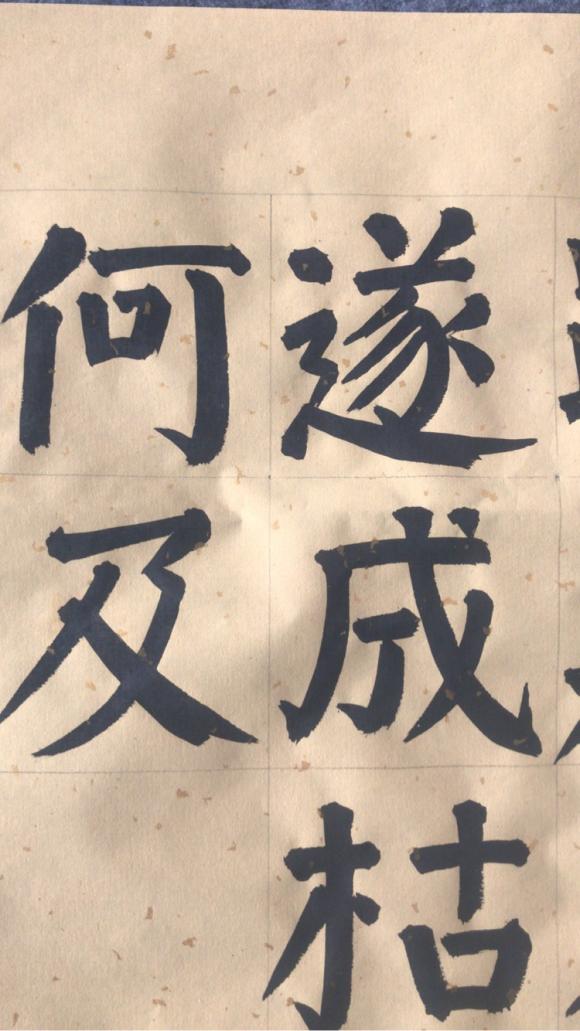 遂成枯
何及